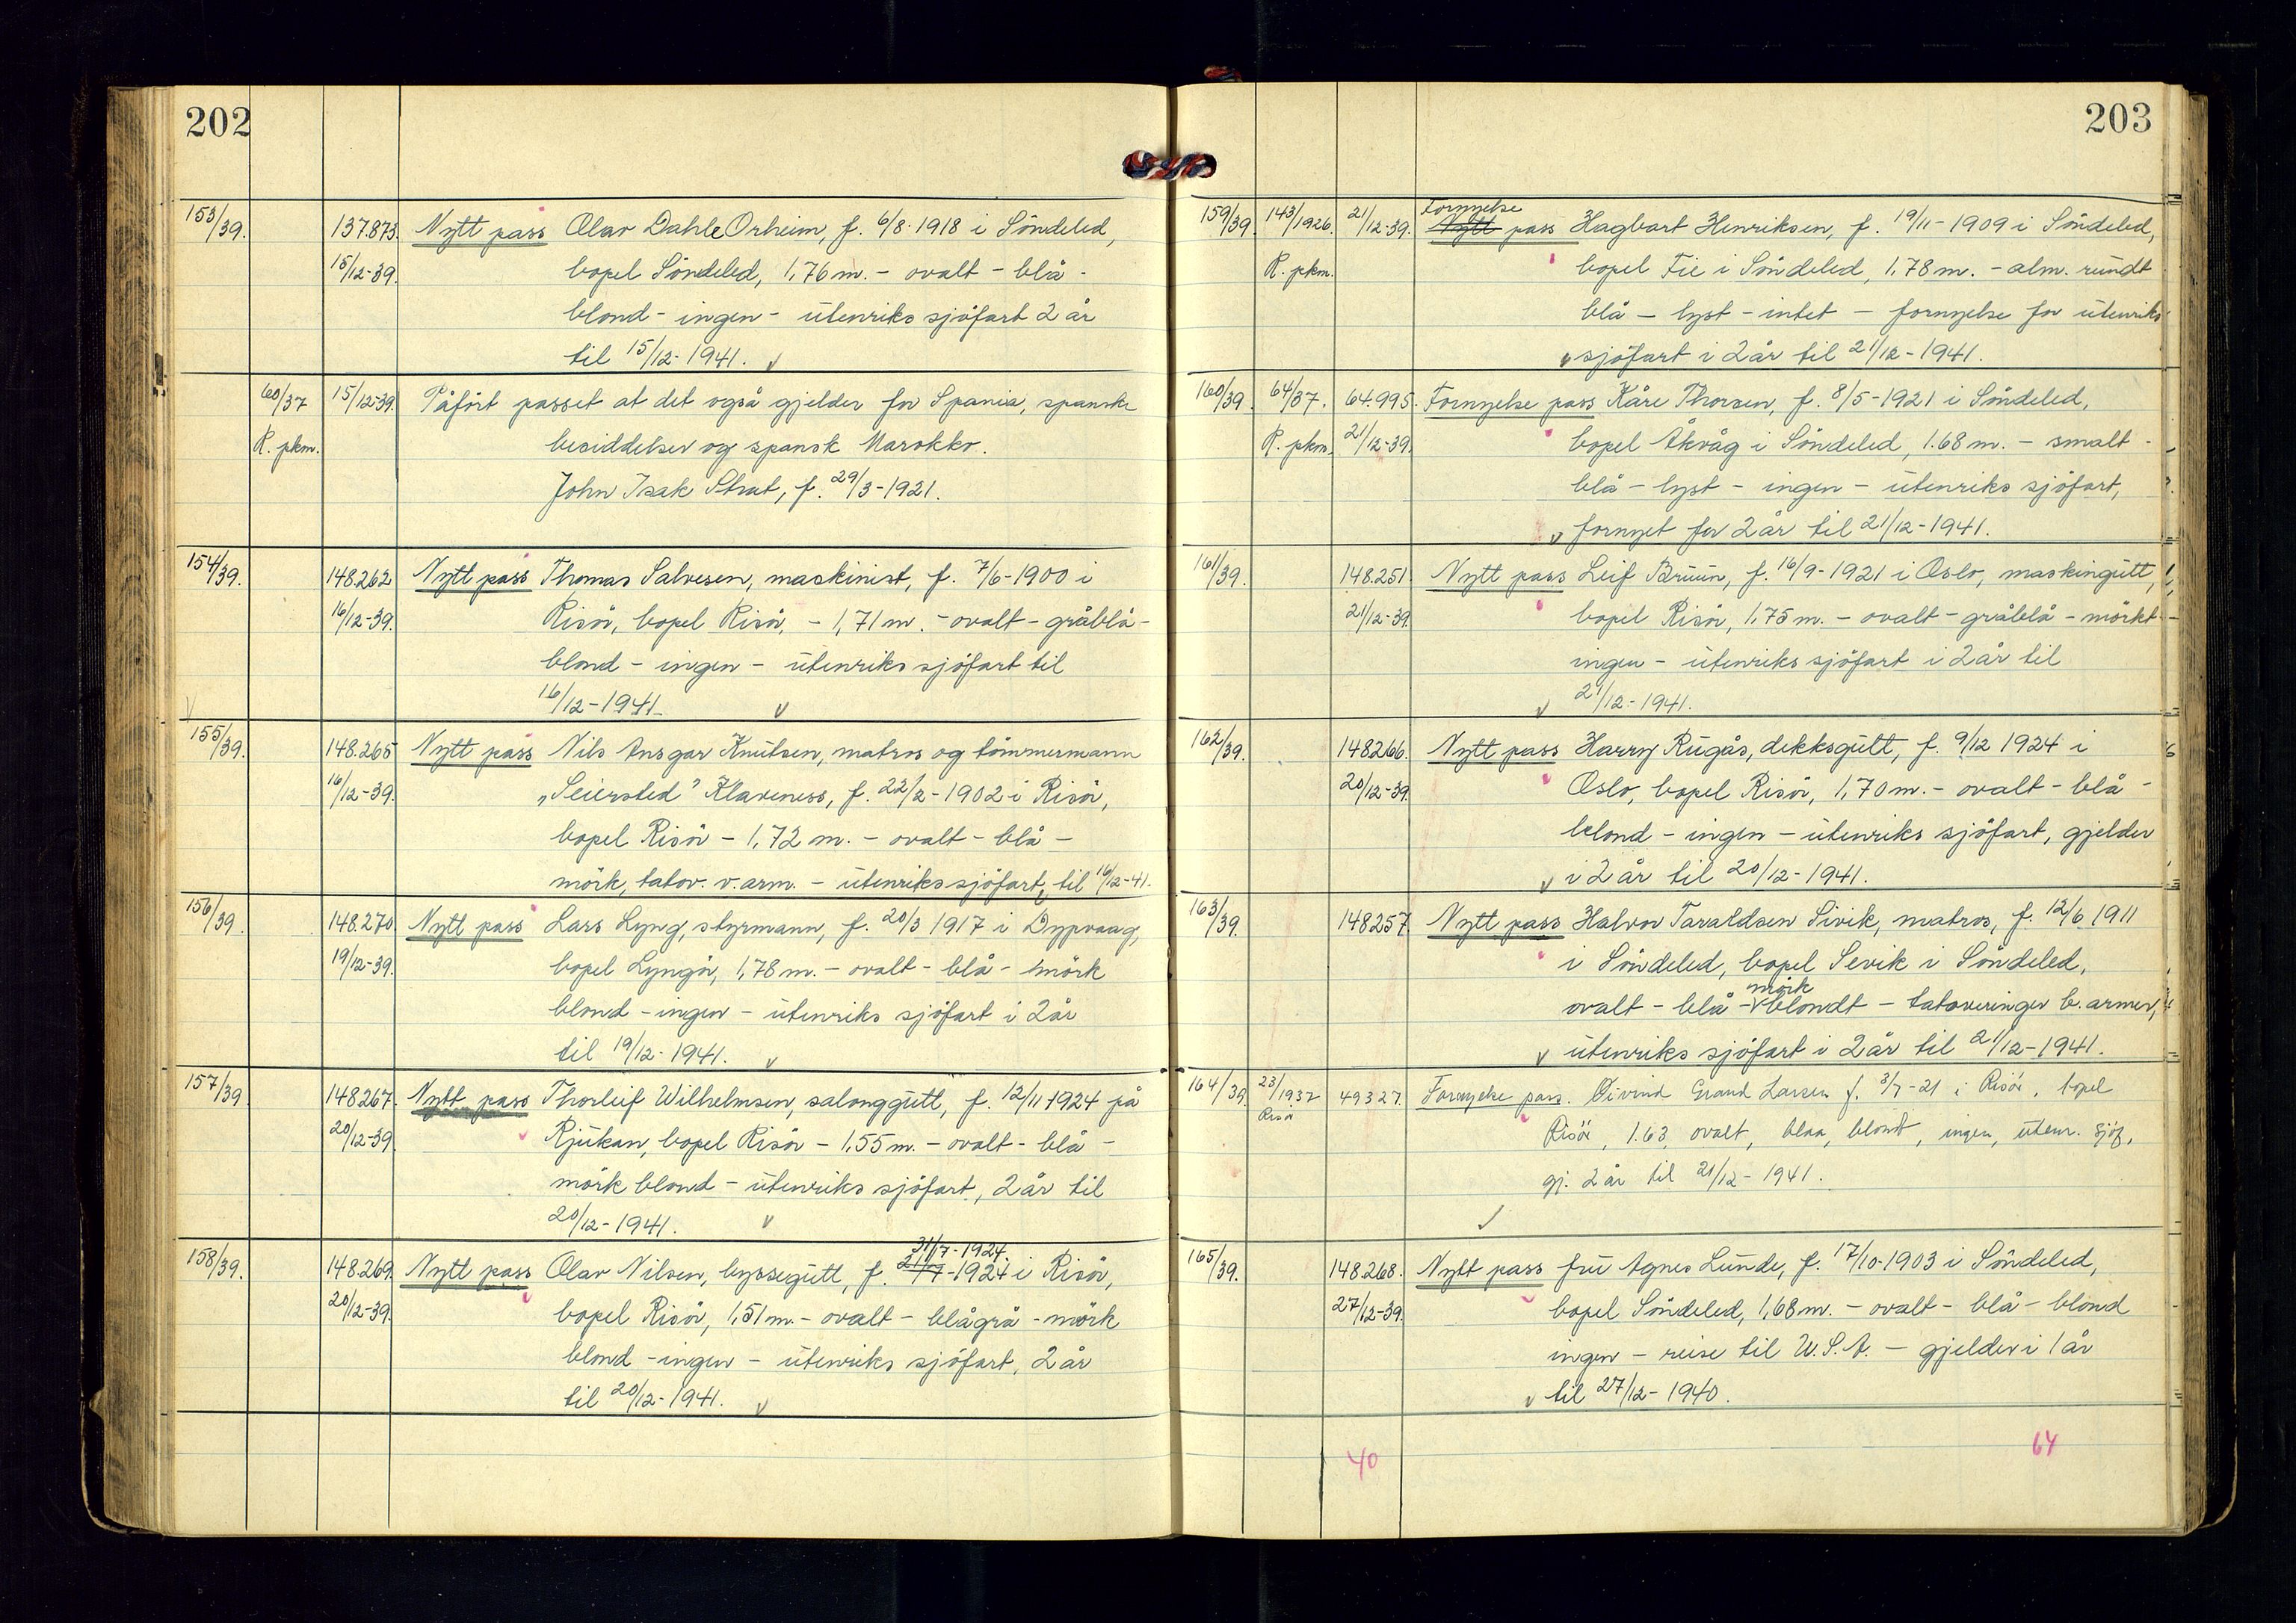 202
153/39.
137.873. Nytt pass Olav Dahle Orheim, f. 6/8-1918 i Söndeled,
15/12-39. bopel Söndeled, 1,76 m. - ovalt - blå -
blond - ingen - utenriks sjöfart 2 år
til 15/12-1941. v
60/37 15/12-39. Påfört passet at det også gjelder for Spania, spanske
R. pkm. besiddelser og spansk Marokko.
John Isak Strat, f. 29/3-1921.
154/39. 148.262 Nytt pass Thomas Salvesen, maskinist, f. 7/6-1900 i
16/12-39. Risör, bopel Risör, - 1,71 m. - ovalt - gråblå -
blond - ingen - utenriks sjöfart til
16/12-1941. v
155/39. 148.265 Nytt pass Nils Ansgar Knutsen, matros og tömmermann
16/12-39. „Seiersted" Klaveness, f. 22/2-1902 i Risör,
bopel Risör - 1,72 m. - ovalt - blå -
mörk, tatov. v. arm. - utenriks sjöfart, til 16/12-41.
156/39. 148.270 Nytt pass Lars Lyng, styrmann, f. 20/3 1917 i Dypvaag,
19/12-39. bopel Lyngör, 1,78 m. - ovalt - blå - mörk
blond - ingen - utenriks sjöfart i 2 år
til 19/12-1941. v
157/39. 148.267. Nytt pass Thorleif Wilhelmsen, salonggutt, f. 12/11 1924 på
20/12-39. Rjukan, bopel Risör - 1,55 m. - ovalt - blå -
mörk blond - utenriks sjöfart, 2 år til
20/12-1941. v
31/7-1924.
158/39. 148.269. Nytt pass Olav Nilsen, byssegutt, f. 21/7-1924 i Risör,
20/12-39. bopel Risör, 1,51 m. - ovalt - blågrå - mörk
blond - ingen - utenriks sjöfart, 2 år
til 20/12-1941. v
203
Fornyelse
159/39. 143/1926. 21/12-39. Nytt pass Hagbart Henriksen, f. 19/11-1909 i Söndeled,
R. pkm. bopel Fie i Söndeled, 1,78 m. - alm. rundt
blå - lyst - intet - fornyelse for utenriks
v sjöfart i 2 år til 21/12-1941.
160/39. 64/37. 64.995. Fornyelse pass Kåre Thorsen, f. 8/5-1921 i Söndeled,
R. pkm. 21/12-39. bopel Åkvåg i Söndeled, 1.68 m. - smalt -
blå - lyst - ingen - utenriks sjöfart,
v fornyet for 2 år til 21/12-1941.
161/39. 148.251. Nytt pass Leif Bruun, f. 16/9-1921 i Oslo, maskingutt,
21/12-39. bopel Risör, 1,75 m. - ovalt - gråblå - mörkt -
ingen - utenriks sjöfart i 2 år til
v 21/12-1941.
162/39. 148266. Nytt pass Harry Rugås, dekksgutt, f. 9/12 1924 i
20/12-39. Oslo, bopel Risör, 1,70 m. - ovalt - blå -
blond - ingen - utenriks sjöfart, gjelder
v i 2 år til 20/12-1941.
163/39. 148257. Nytt pass Halvor Taraldsen Sivik, matros, f. 12/6 1911
i Söndeled, bopel Sevik i Söndeled,
mörk
ovalt - blå - v blondt - tatoveringer b. armer,
v utenriks sjöfart i 2 år til 21/12-1941.
164/39. 23/1937 49327. Fornyelse pass. Öivind Grand Larsen f. 3/7-21 i Risör, bopel
Risör Risör, 1.63, ovalt, blaa, blondt, ingen, utenr. sjöf.
gj. 2 år til 21/12-1941.
165/39. 148.268. Nytt pass fru Agnes Lunde, f. 17/10-1903 i Söndeled,
27/12-39. bopel Söndeled, 1,68 m. - ovalt - blå - blond
ingen - reise til U.S.A. - gjelder i 1 år
v til 27/12-1940.
40 64